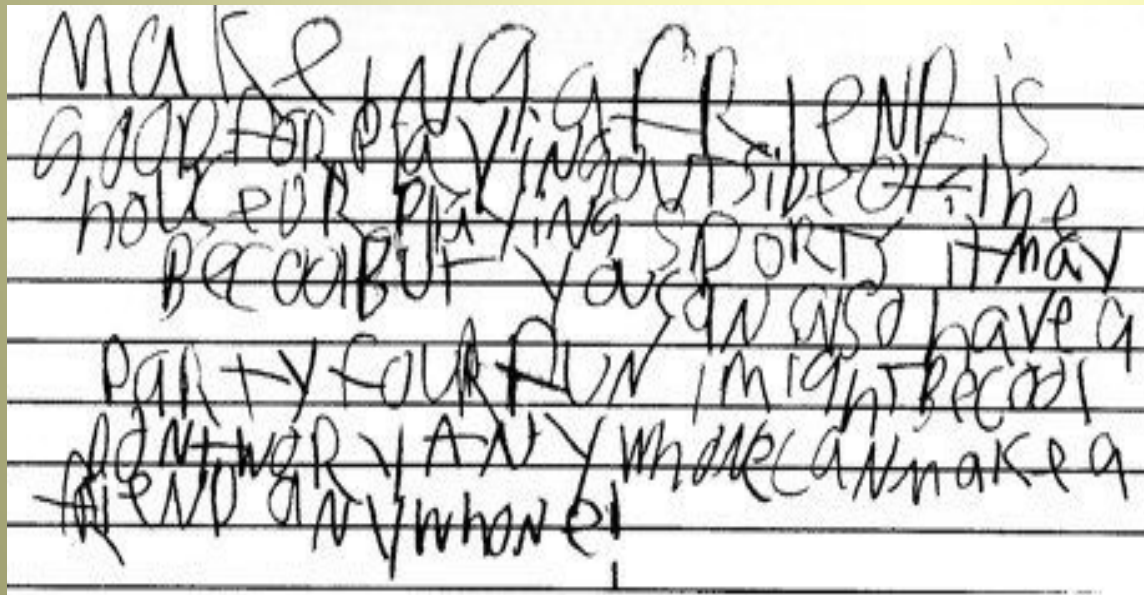 MakeiNg a FRieND is
gooD for playying outsiDe of the
houseor playying sports it may
Be coolBut you can also have a
parRty four fuN imight Be cool
DoNt worRy ANy whone caN make a
frieND aNy whoNe!